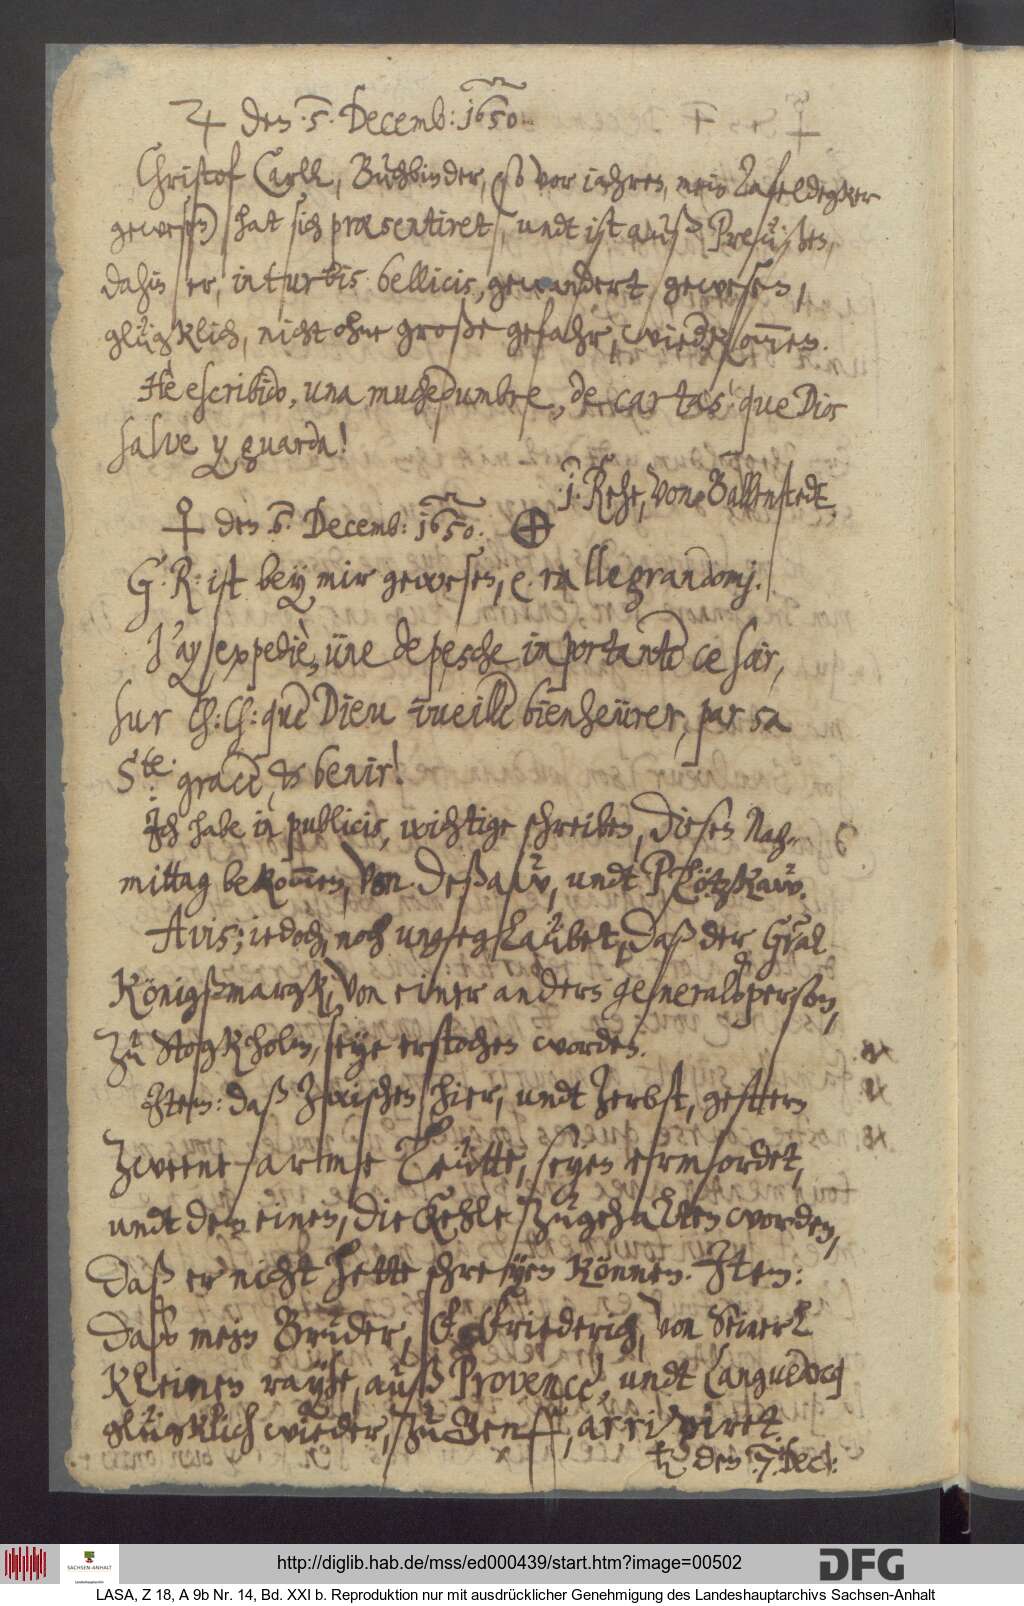 ♃ den 5. Decemb: 1650.
Christof Carll, Buchbinder, (so vor iahren, mein Tafeldegker
gewesen) hat sich præsentiret, undt ist auß Preüßen,
dahin er, in turbis bellicis, gewandert gewesen,
glügklich, nicht ohne große gefahr, wiederkommen.
Hè escribido, una muchedumbre, de cartas, que Dios
salve y guarda!
j. Rehe, von Ballenstedt.
♀ den 6. Decemb: 1650. ⊕
G. R: ist bey mir gewesen, e rallegrandomj.
J'ay expediè, üne depesche importante ce soir,
sur Ch: Ch: que Dieu vueille bienheürer, par sa
Ste. grace, & benir!
Ich habe in publicis, wichtige schreiben, diesen Nach-
mittag bekommen, von Deßaw, undt Plötzkaw.
Avis; iedoch, noch ungeglaübet, daß der Graf
Königßmargk, von einer anders generalsperson,
zu Stogkholm, seye erstochen worden.
Item: daß zwischen hier, undt Zerbst, gestern
zweene arme Leütte, seyen ermordet,
undt dem einen, die Kehle zugehalten worden,
daß er nicht hette schreyen können. Item:
daß mein Bruder, F. Friederich, von seiner
kleinen rayse, auß Provence, undt Languedocq
glügklich wieder, zu Genf, arriviret.
♄ den 7. Dec:
http://diglib.hab.de/mss/ed000439/start.htm?image=00502
SACHSEN-ANHALT
Landeshauptarchiv
DFG
LASA, Z 18, A 9b Nr. 14, Bd. XXI b. Reproduktion nur mit ausdrücklicher Genehmigung des Landeshauptarchivs Sachsen-Anhalt